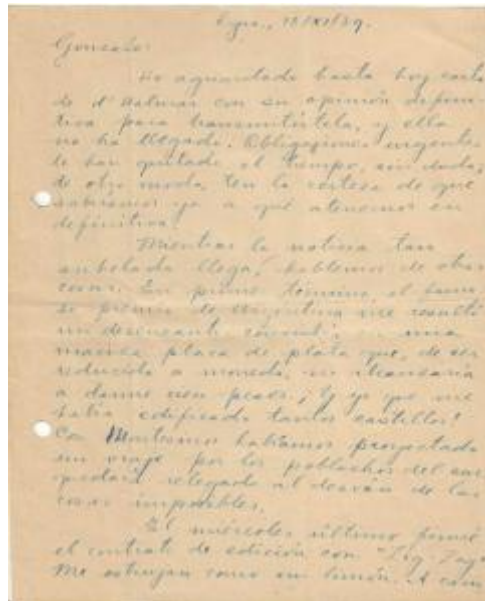 Gonzalo:
He aguardado hasta hoy carta
de d'Halmar con su opinión defini-
tiva para transmitírtela, y ella
no ha llegado. Obligaciones urgentes
le han quitado el tiempo, sin duda;
de otro modo, ten la certeza de que
sabríamos ya a qué atenernos en
definitiva.
Mientras la noticia tan
anhelada llega, hablemos de otras
cosas. En primer término, el famo-
so premio de Argentina me resultó
un desencanto: una
placa de plata que, de ser
reducida a moneda, no alcanzaría
a darme cien pesos. ¡Y yo que me
había edificado tantos castillos!
Con habíamos proyectado
un viaje por los poblachos del sur
quedará relegado al desván de las
cosas imposibles.
El miércoles último firmé
el contrato de edición con "Zig-Zag"
Me estrujan como un limón. A cam